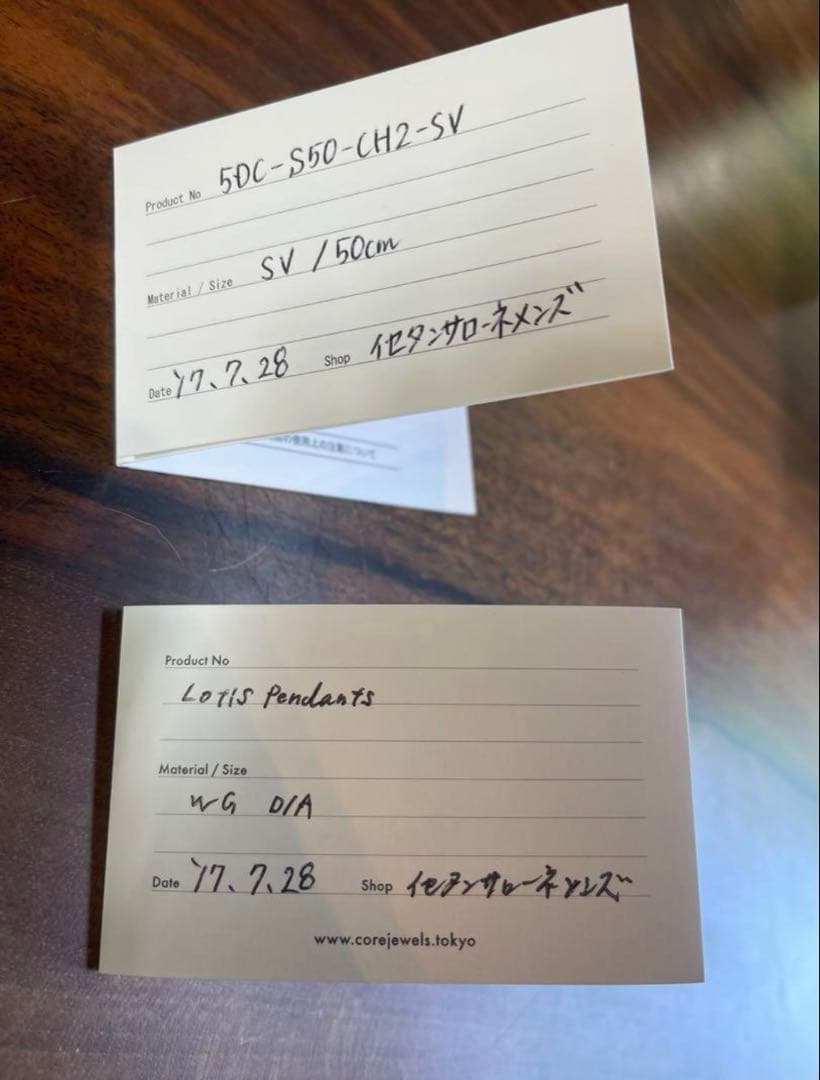 Product No 5DC-S50-CH2-SV
Material / Size SV / 50cm
Date '17、7、28 Shop イセタンサローネメンズ
の使用上の注意について
Product No
LOTIS Pendants
Material / Size
WG DIA
Date '17、7、28 Shop イセタンサローネメンズ
www.corejewels.tokyo